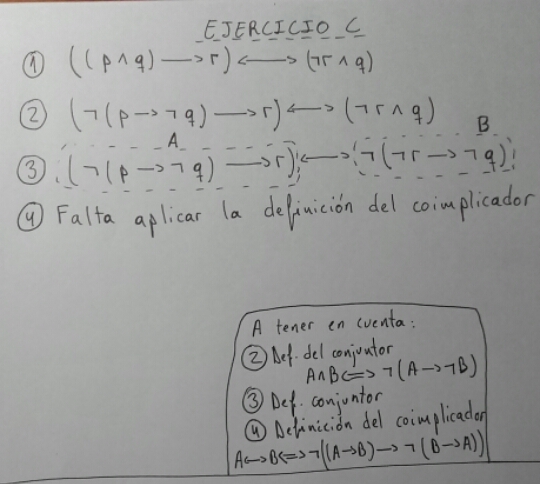 EJERCICIO C
① ((p ∧ q) ⟶ r) ⟷ (¬r ∧ q)
② (¬(p → ¬q) ⟶ r) ⟷ (¬r ∧ q)
A B
③ (¬(p → ¬q) ⟶ r) ⟷ ¬(¬r → ¬q)
④ Falta aplicar la definición del coimplicador
A tener en cuenta:
② Def. del conjuntor
A∧B ⟺ ¬(A → ¬B)
③ Def. conjuntor
④ Definición del coimplicador
A⟷B ⟺ ¬((A→B) → ¬(B→A))